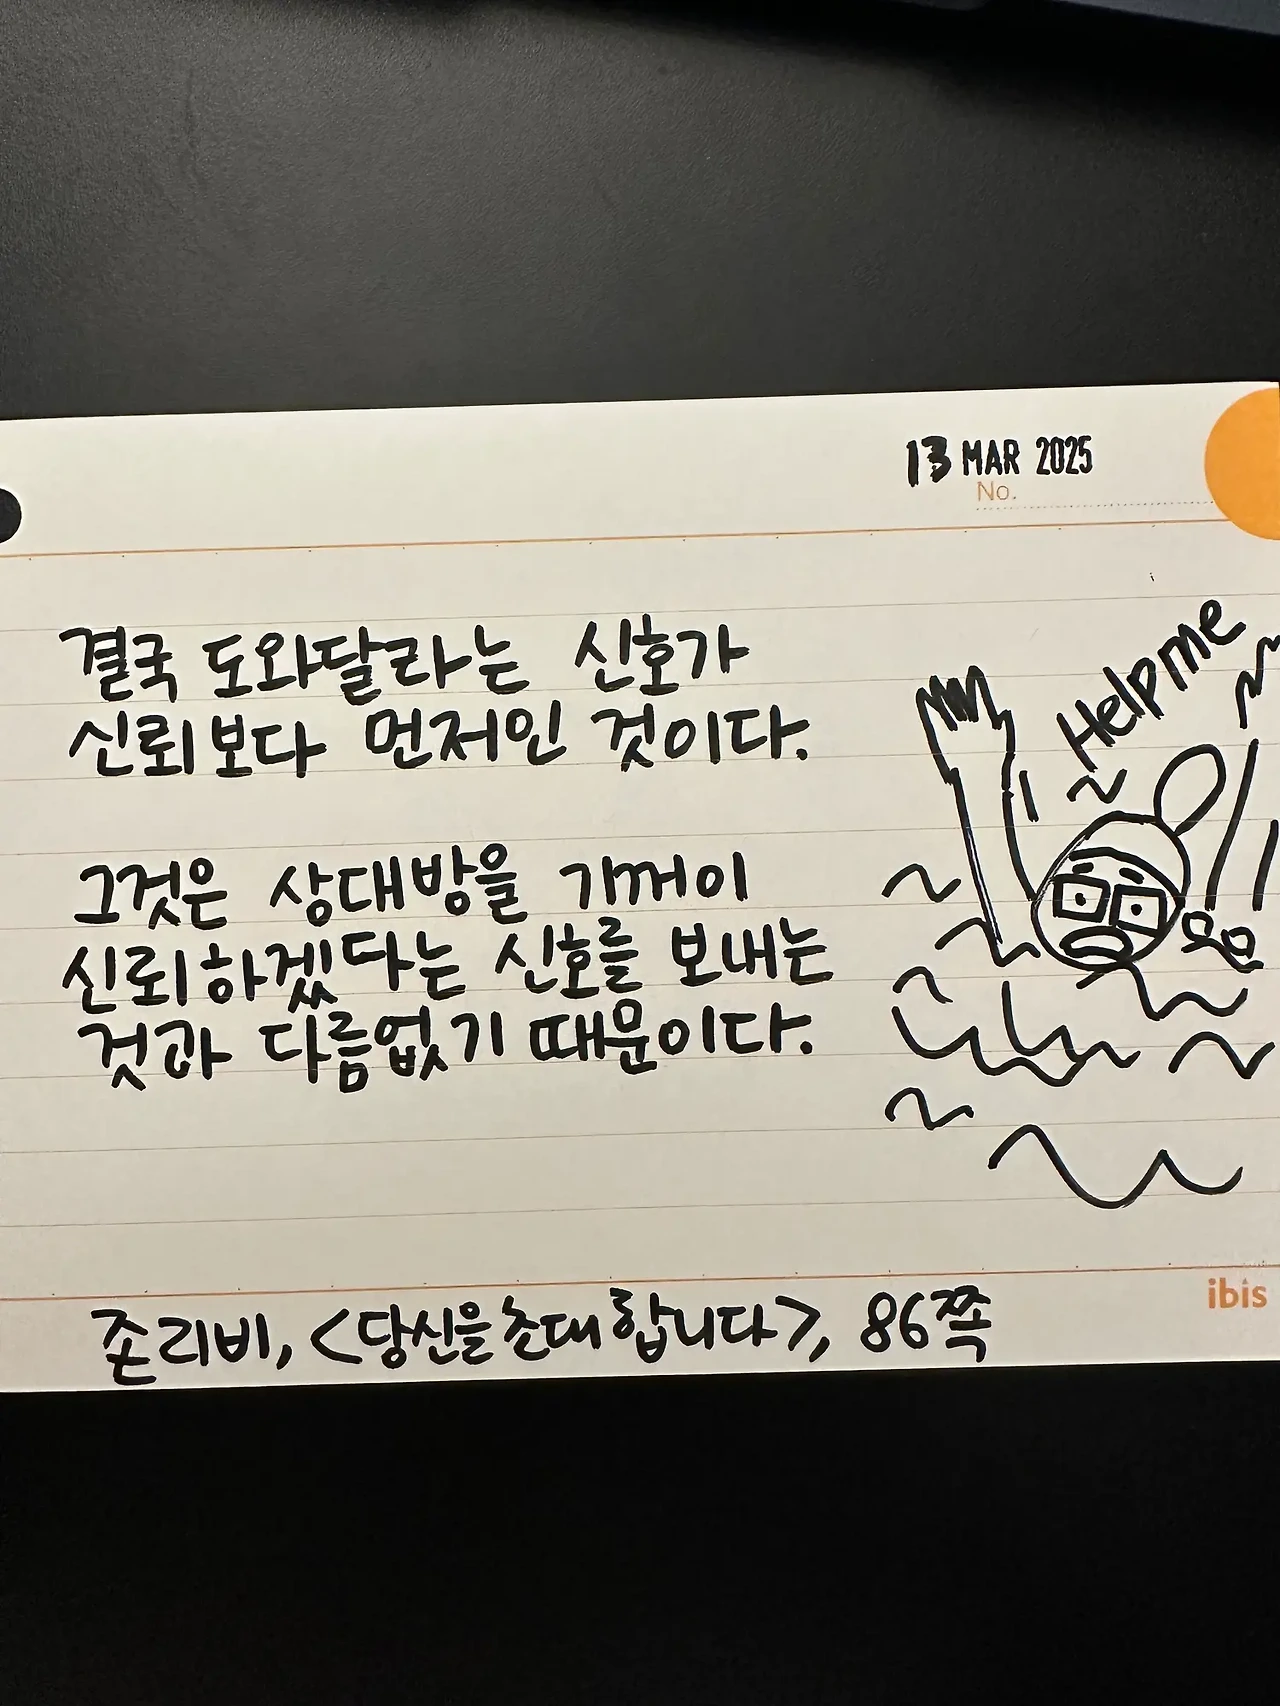 13 MAR 2025
No.
Help me
결국 도와달라는 신호가
신뢰보다 먼저인 것이다.
그것은 상대방을 기꺼이
신뢰하겠다는 신호를 보내는
것과 다름없기 때문이다.
ibis
존리비, <당신을 초대합니다>, 86쪽